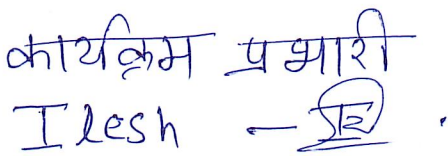 कार्यक्रम प्रभारी
Ilesh -